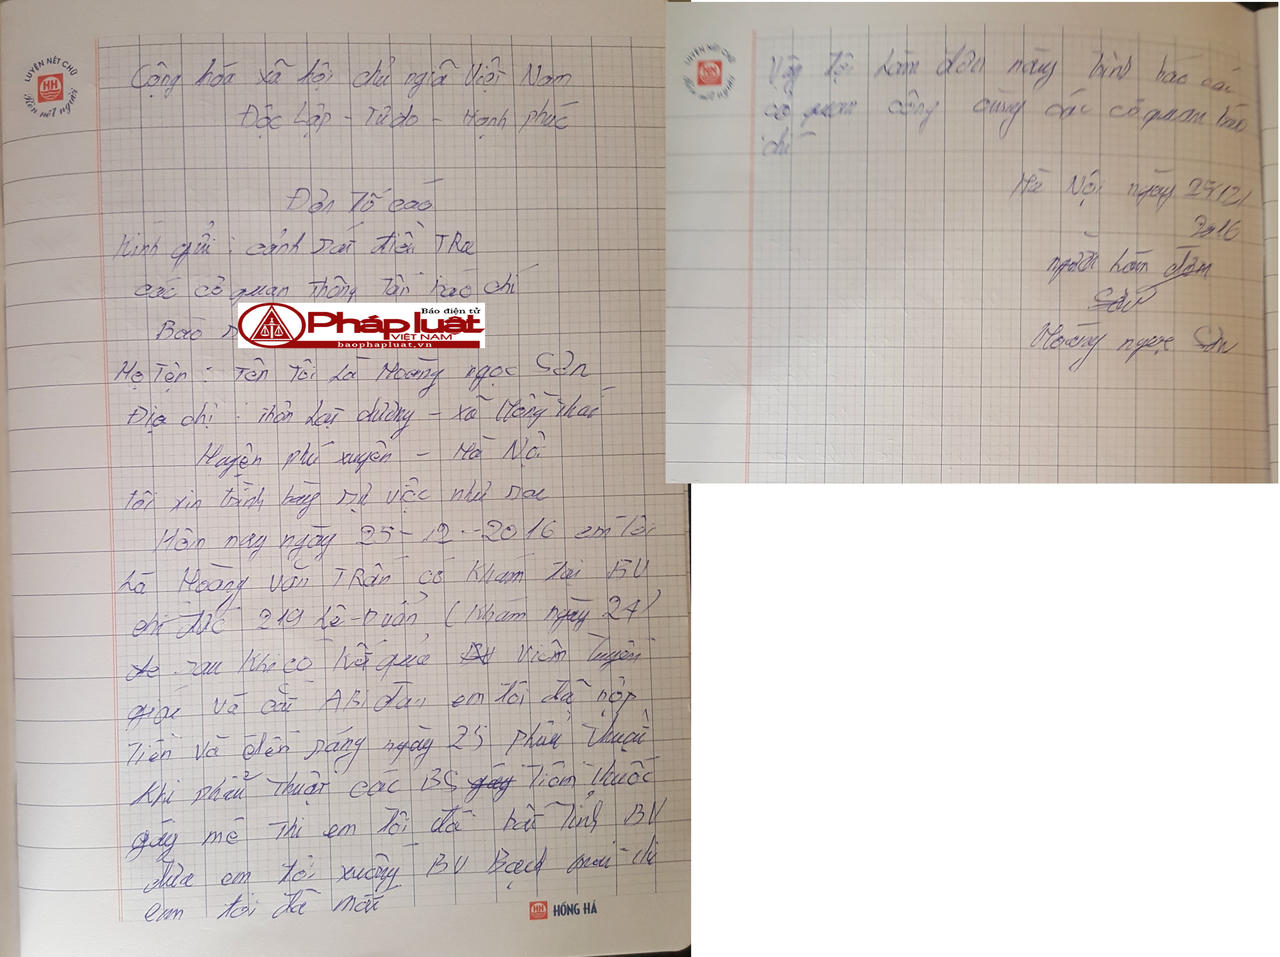 LUYỆN NÉT CHỮ
HH
Rèn nết người
Cộng hóa xã hội chủ nghĩa Việt Nam
Độc Lập - Tự do - Hạnh phúc
Đơn Tố cáo
Kính gửi : cảnh sát điều TRa
các cơ quan thông Tấn báo chí
Báo
Báo điện tử
Pháp luật
VIỆT NAM
baophapluat.vn
Họ Tên : Tên Tôi Là Hoàng ngọc Sơn
Địa chỉ : thôn Lạt dương - xã Hồng thái
Huyện phú xuyên - Hà Nội
tôi xin trình bày sự việc như sau
Hôm nay ngày 25-12-2016 em tôi
Là Hoàng Văn TRần có Khám tại BV
219 Lê-Duẩn ( Khám ngày 24)
sau khi có kết quả Viêm Tuyến
và cắt em tôi đã nộp
Tiền Và đến sáng ngày 25 phẫu Thuật
Khi phẫu Thuật các BS Tiêm thuốc
gây mê Thì em tôi đã bất Tỉnh BV
đưa em tôi xuống BV Bạch mai thì
em tôi đã mất
HH HỒNG HÀ
LUYỆN NÉT CHỮ
HH
Rèn nết người
Vậy tôi Làm đơn này trình báo các
cơ quan công cùng các cơ quan báo
chí
Hà Nội ngày
2016
người Làm đơn
Sơn
Hoàng ngọc Sơn